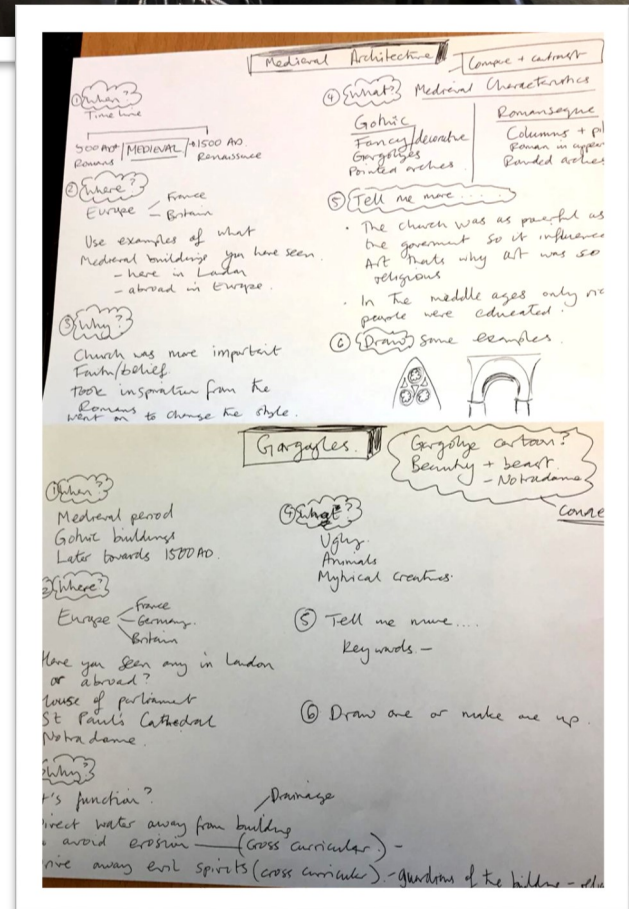 Medieval Architecture
Compare + contrast
① When?
Time line
500 AD MEDIEVAL 1500 AD
Romans Renaissance
② Where?
Europe France
Britain
Use examples of what
Medieval buildings you have seen.
- here in London
- abroad in Europe.
③ Why?
Church was more important
Faith/belief
took inspiration from the
Romans
went on to change the style.
④ What? Medieval Characteristics
Gothic
Fancy/decorative
Gargolyes
Pointed arches
Romanseque
Columns + pil
Roman in appear
Rounded arches
⑤ Tell me more.....
• The church was as powerful as
the goverment so it influence
Art thats why art was so
religious
• In the middle ages only ric
people were educated.
⑥ Draw some examples.
Gargoyles.
Gargolye cartoon?
Beauty + beast
- Notradame
Conne
① When?
Medieval period
Gothic buildings
Later towards 1500 AD.
② Where?
Europe France
Germany.
Britain
Have you seen any in London
or abroad?
House of parliament
St Paul's Cathedral
Notradame.
Why?
t's function? Drainage
irect water away from building
avoid erosion (Cross curricular.) -
rive away evil spirits (cross curricular). - guardians of the building - relig
④ What?
Ugly.
Animals
Mythical creatures.
⑤ Tell me more....
Key words. -
⑥ Draw one or make one up.